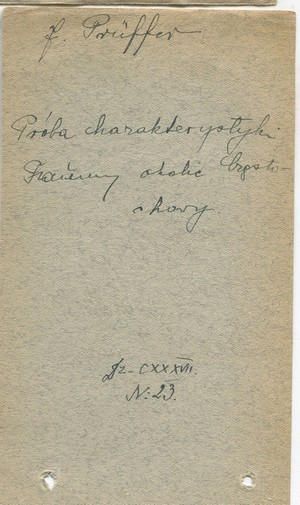 J. Prüffer
Próba charakterystyki
okolic Często-
chowy.
Dz-CXXXVII.
N: 23.